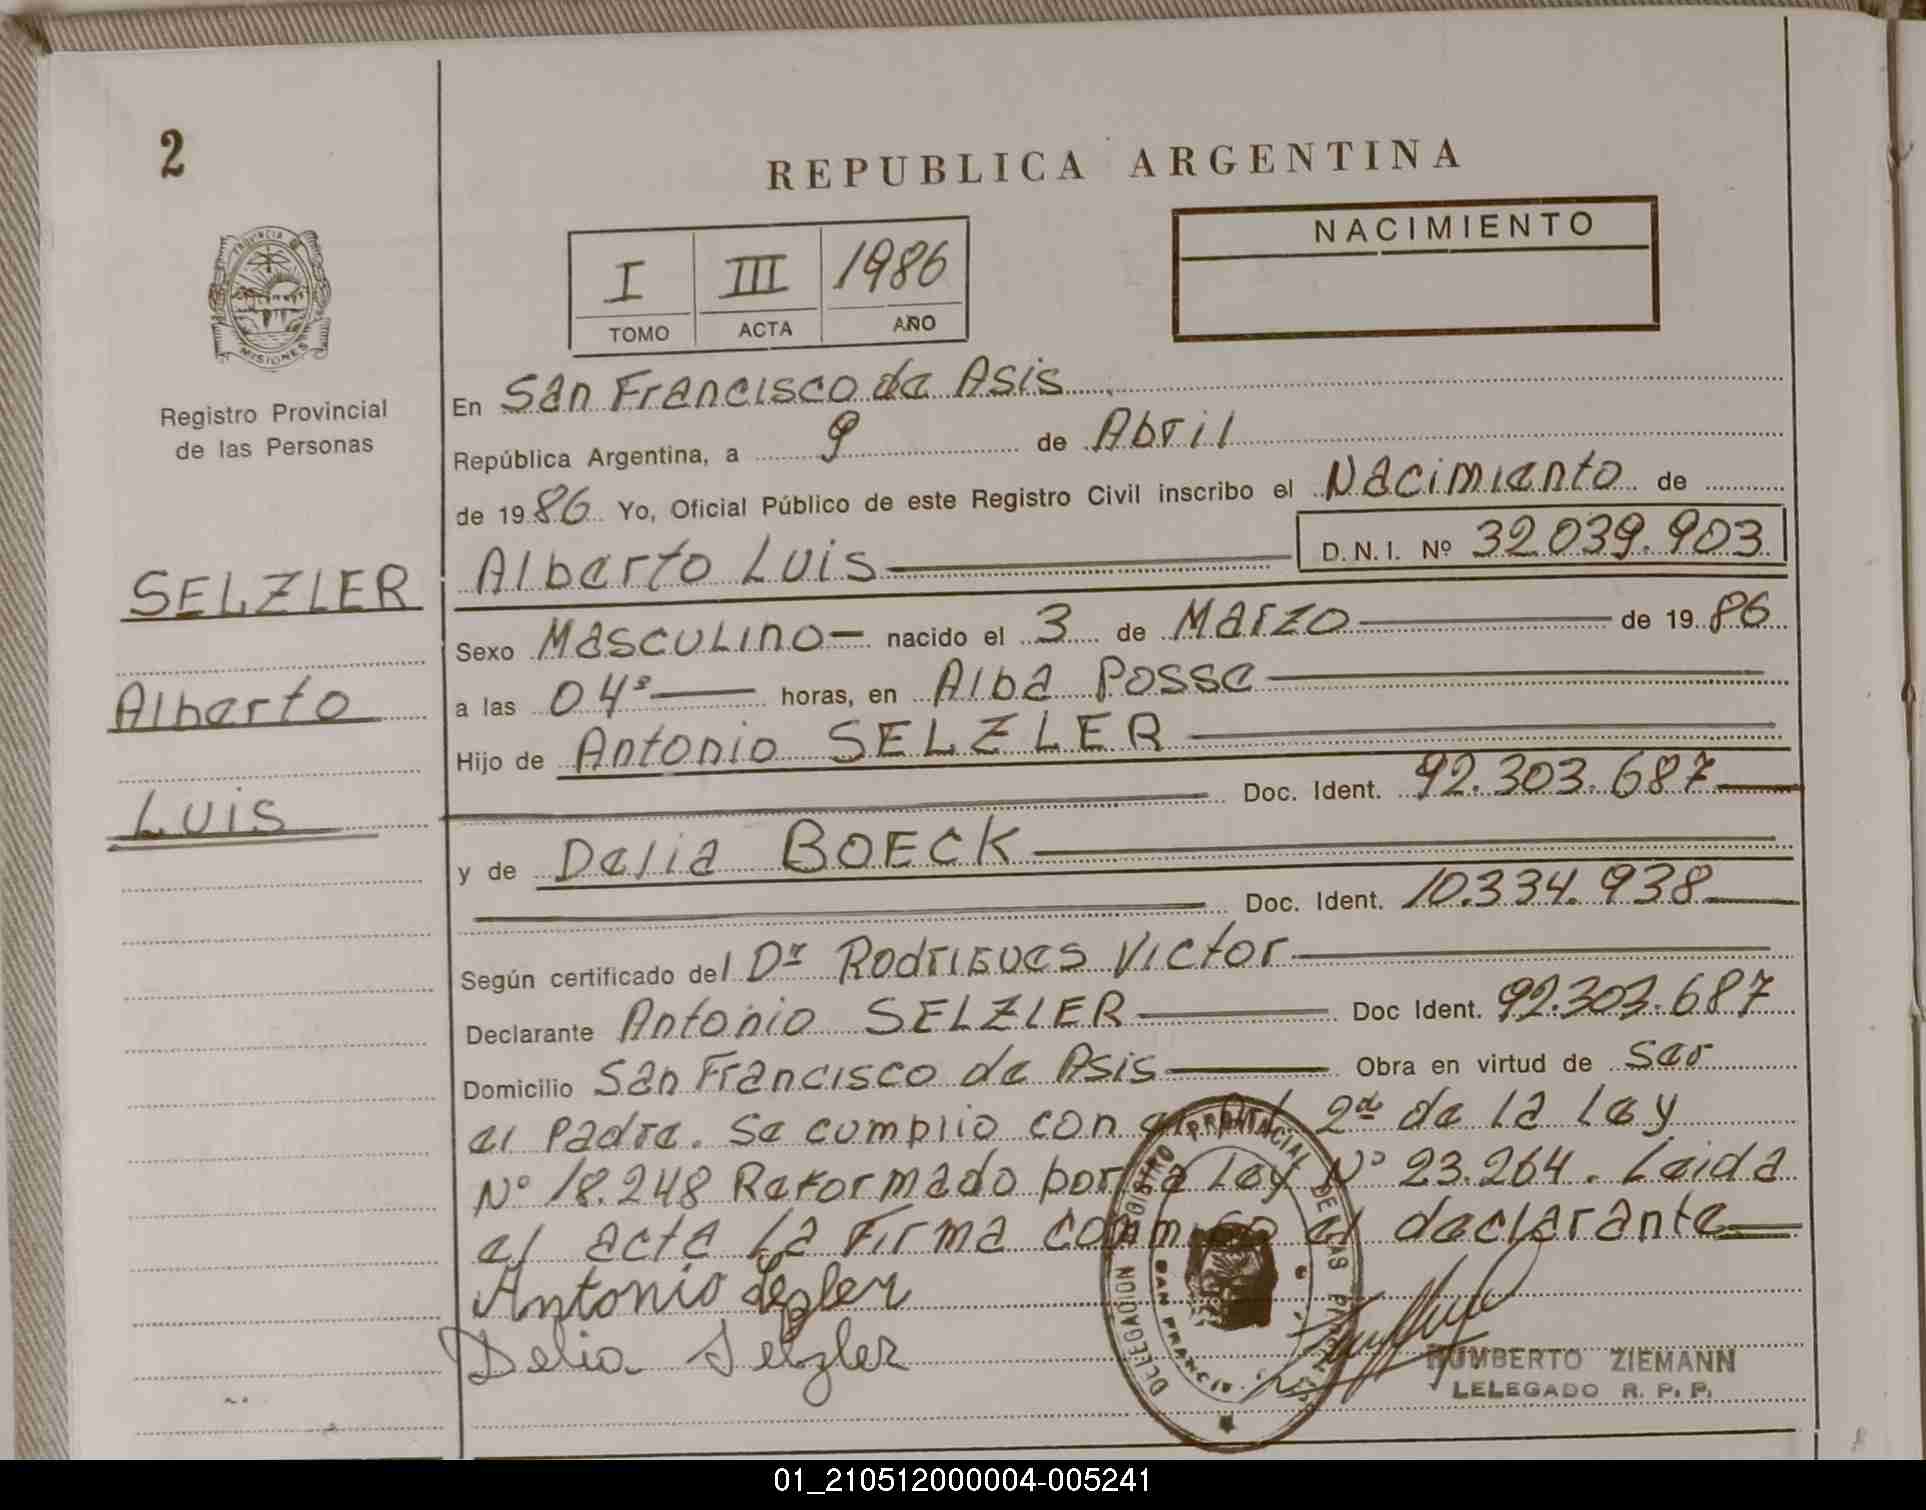 2
REPUBLICA ARGENTINA
I III 1986
TOMO ACTA AÑO
NACIMIENTO
PROVINCIA DE
MISIONES
Registro Provincial
de las Personas
SELZLER
Alberto
Luis
En San Francisco de Asis
República Argentina, a 9 de Abril
de 1986 Yo, Oficial Público de este Registro Civil inscribo el Nacimiento de
Alberto Luis D.N.I. Nº 32.039.903
Sexo Masculino nacido el 3 de Marzo de 1986
a las 04 horas, en Alba Posse
Hijo de Antonio SELZLER
Doc. Ident. 92.303.687
y de Delia BOECK
Doc. Ident. 10.334.938
Según certificado del Dr Rodrigues Victor
Declarante Antonio SELZLER Doc Ident. 92.303.687
Domicilio San Francisco de Asis Obra en virtud de ser
el Padre. Se cumplio con el Art 2do de la Ley
Nº 18.248 Reformado por la Ley Nº 23.264. Leida
el acta la Firma conmigo el declarante
Antonio Selzler
Delia Selzler
DELEGACION REGISTRO PROVINCIAL DE LAS PERSONAS
SAN FRANCIS
HUMBERTO ZIEMANN
LELEGADO R. P. P.
01_210512000004-005241